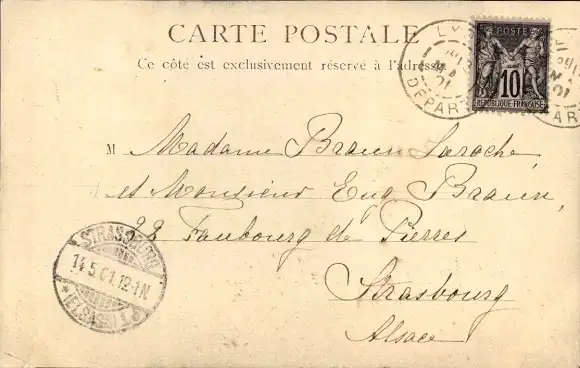 CARTE POSTALE
Ce côté est exclusivement réservé à l'adresse
POSTE
10
RÉPUBLIQUE FRANÇAISE
DÉPART
01
M Madame Braun Laroche,
et Monsieur Eug Braun,
22 Faubourg de Pierres
Strasbourg
Alsace
STRASSBURG
14.5.01.12-1N
(ELSASS) 1